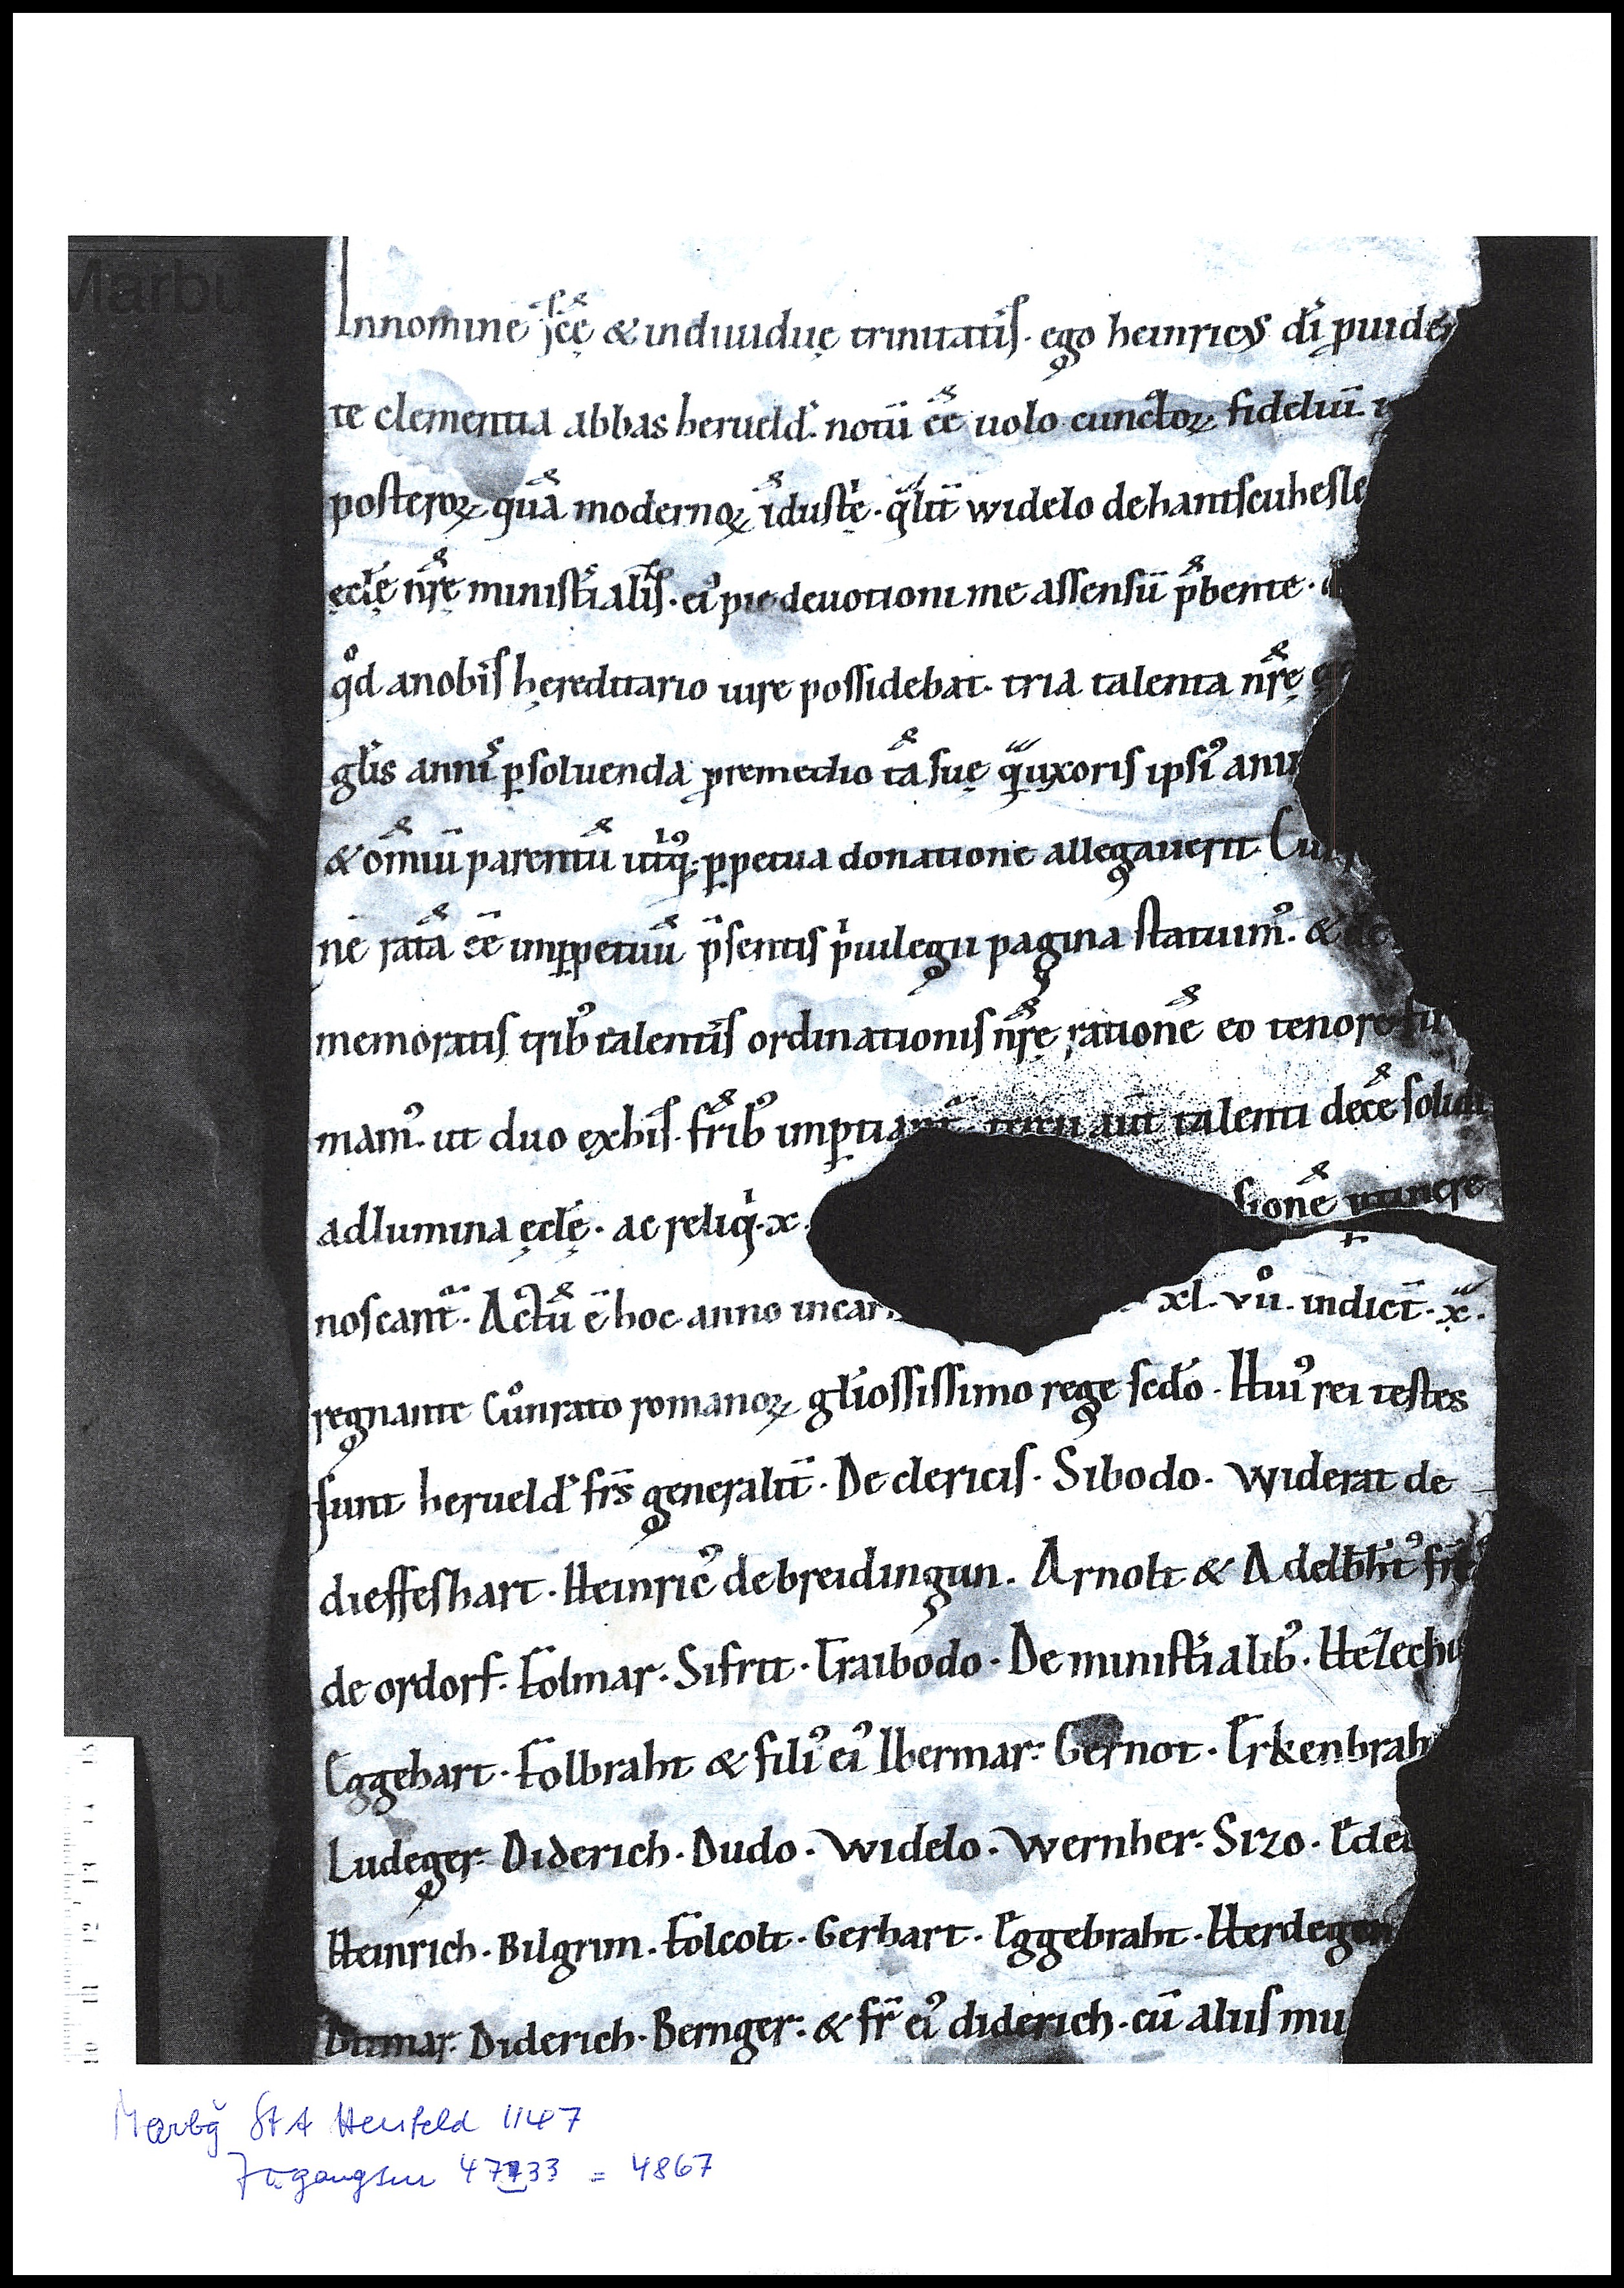 Marbu
Innomine sc̄ę & indiuiduę trinitatis. ego heinricꝰ dī ꝓuidē
te clementia abbas herueld̄. notū ēē uolo cunctoꝝ fideliū.
posteroꝝ quā moderno ꝝ īdustę̄. qͣlit̄ widelo de hantscuhesle
ęcl̄ę nr̄ę minist̄ialis. eiꝰ pie deuotioni me assensū p̄bente.
qͦd anobis hereditario iure possidebat. tria talenta nr̄ę
gl̄is annī ꝑsoluenda ꝓremedio tā suę qͣ uxoris ipsiꝰ
& om̄iū parentū utiqꝫ ꝑpetua donatione allegauerit
nē ratā ēē inꝑpetuū p̄sentis p̄uilegii pagina statuimꝰ. &
memoratis tribꝰ talentis ordinationis nr̄ę ratione eo tenore
mamꝰ. ut duo exhis. fr̄ibꝰ imꝑtiant̄ aut̄ talenti decē solid
adlumina ęcl̄ę. ac reliqͥ. x. sionē
noscant̄. Actū ē hoc anno incar xl. vii. indict̄. x.
regnante Cuͦnrato romanoꝝ gl̄iosissimo rege scd̄o. Huiꝰ rei testes
sunt herueld̄ fr̄s generalit̄. De clericis. Sibodo. Widerat de
dieffeshart. Heinricꝰ de breidingun. Arnolt & Adelbh̄tꝰ fr̄
de ordorf. Folmar. Sifrit. Traibodo. De minist̄ialibꝰ. Hezech
Eggehart. Folbraht & filiꝰ eiꝰ Ibermar. Gernot. Erkenbrah
Ludeger. Diderich. Dudo. Widelo. Wernher. Sizo.
Heinrich. Bilgrim. Folcolt. Gerhart. Eggebraht. Herdegen
Ditmar. Diderich. Bernger. & fr̄ eiꝰ diderich. cū aliis mu
Marbg̃ StA Hersfeld 1147
Zugangsnr 47733 = 4867